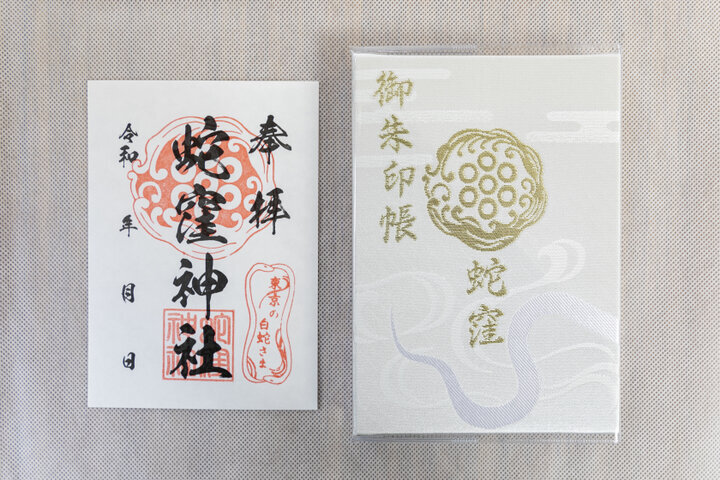 奉拝
蛇窪神社
東京の
白蛇さま
令和 年 月 日
御朱印帳
蛇窪